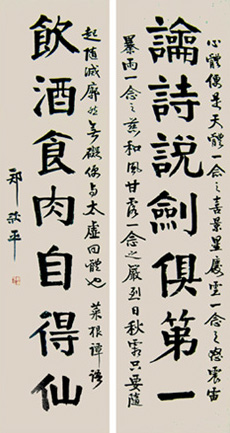 心體便是天體一念之喜景星慶雲一念之怒震雷
論詩說劍俱第一
暴雨一念之慈和風甘露一念之嚴烈日秋霜只要隨
起隨滅廓然無礙便與太虛同體也 菜根譚語
飲酒食肉自得仙
郑 平